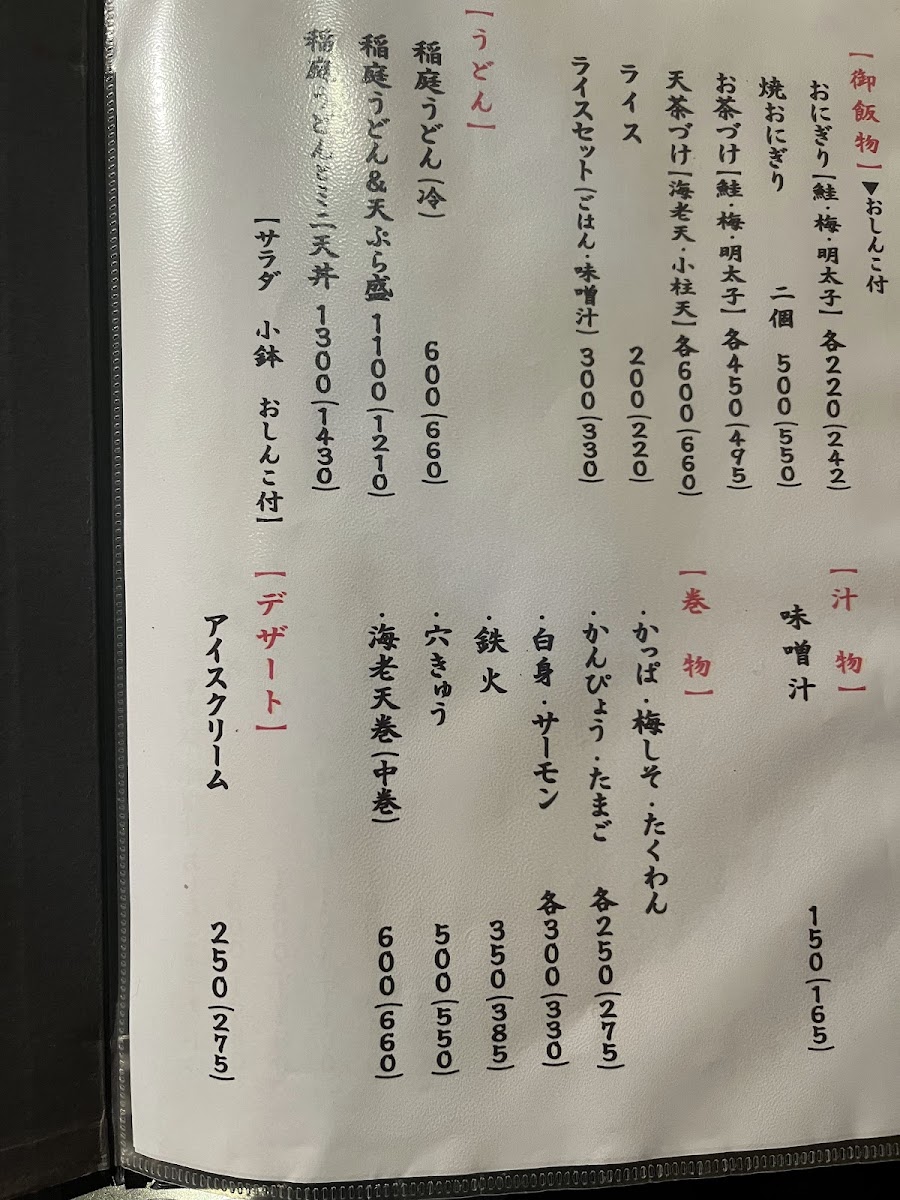 【御飯物】▼おしんこ付
おにぎり【鮭・梅・明太子】各220(242)
焼おにぎり 二個 500(550)
お茶づけ【鮭・梅・明太子】各450(495)
天茶づけ【海老天・小柱天】各600(660)
ライス 200(220)
ライスセット(ごはん・味噌汁)300(330)
【うどん】
稲庭うどん(冷) 600(660)
稲庭うどん&天ぷら盛 1100(1210)
稲庭うどん&ミニ天丼 1300(1430)
【サラダ 小鉢 おしんこ付】
【汁物】
味噌汁 150(165)
【巻物】
・かっぱ・梅しそ・たくわん
・かんぴょう・たまご 各250(275)
・白身・サーモン 各300(330)
・鉄火 350(385)
・穴きゅう 500(550)
・海老天巻(中巻) 600(660)
【デザート】
アイスクリーム 250(275)